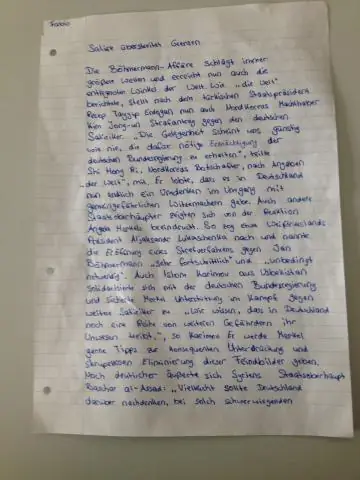 Satire überschreitet Grenzen
Die Böhmermann-Affäre schlägt immer
größere Wellen und erreicht nun auch die
entlegensten Winkel der Welt. Wie „die Welt"
berichtete, stellt nach dem türkischen Staatspräsident
Recep Tayyip Erdogan nun auch Nordkoreas Machthaber
Kim Jong-un Strafantrag gegen den deutschen
Satiriker. „Die Gelegenheit scheint uns günstig
wie nie, die dafür nötige Ermächtigung der
deutschen Bundesregierung zu erhalten", teilte
Shi Hong Ri, Nordkoreas Botschafter, nach Angaben
„der Welt", mit. Er lobte, dass es in Deutschland
nun endlich ein Umdenken im Umgang mit
gemeingefährlichen Witzemachern gebe. Auch andere
Staatsoberhäupter zeigten sich von der Reaktion
Angela Merkels beeindruckt. So zog etwa Weißrusslands
Präsident Aleksander Lukaschenko nach und nannte
die Eröffnung eines Strafverfahrens gegen Jan
Böhmermann „sehr fortschrittlich" und „unbedingt
notwendig". Auch Islom Karimov aus Usbekistan
solidarisierte sich mit der deutschen Bundesregierung
und sicherte Merkel Unterstützung im Kampf gegen
weitere Satiriker zu. „Wir wissen, dass in Deutschland
noch eine Reihe von weiteren Gefährdern ihr
Unwesen treibt.", so Karimov. Er werde Merkel
gerne Tipps zur konsequenten Unterdrückung und
skrupellosen Eliminierung dieser Feindbilder geben.
Noch deutlicher äußerte sich Syriens Staatsoberhaupt
Baschar al-Assad: „Vielleicht sollte Deutschland
darüber nachdenken, bei solch schwerwiegenden